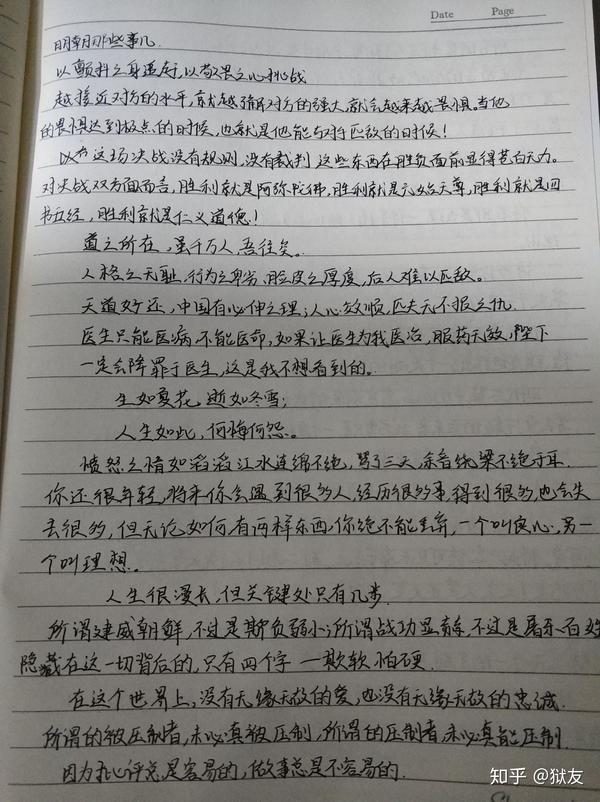 Date Page
明朝那些事儿.
以颤抖之身追赶,以敬畏之心挑战
越接近对方的水平,就越了解对方的强大,就会越来越畏惧.当他
的畏惧达到极点的时候,也就是他能与对手匹敌的时候!
以为这场决战没有规则,没有裁判 这些东西在胜负面前显得苍白无力.
对决战双方面而言,胜利就是阿弥陀佛,胜利就是元始天尊,胜利就是四
书五经,胜利就是仁义道德!
道之所在,虽千万人,吾往矣.
人格之无耻,行为之卑劣,脸皮之厚度,后人难以匹敌。
天道好还,中国有必伸之理;人心效顺,匹夫无不报之仇.
医生只能医病,不能医命,如果让医生为我医治,服药无效,陛下
一定会降罪于医生,这是我不想看到的。
生如夏花,逝如冬雪;
人生如此,何悔何怨。
愤怒之情如滔滔江水连绵不绝,骂了三天,余音绕梁不绝于耳.
你还很年轻,将来你会遇到很多人,经历很多事,得到很多,也会失
去很多,但无论如何,有两样东西,你绝不能丢弃,一个叫良心,另一
个叫理想。
人生很漫长,但关键处只有几步.
所谓建威朝鲜,不过是欺负弱小;所谓战功显赫,不过是屠杀百姓
隐藏在这一切背后的,只有四个字 一欺软怕硬.
在这个世界上,没有无缘无故的爱,也没有无缘无故的忠诚.
所谓的被压制者,未必真被压制,所谓的压制者,未必真能压制.
因为批评总是容易的,做事总是不容易的.
知乎 @狱友